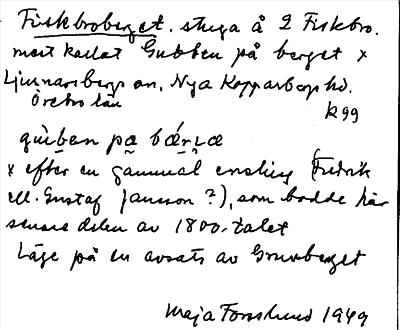 Fiskbroberget. stuga å 2 Fiskbro.
mest kallat Gubben på berget x
Ljusnarsbergs sn, Nya Kopparbergs hd.
Örebro län
k 99
gùben pa bǽrɩæ
x efter en gammal ensling (Fredrik
ell. Gustaf Jansson?), som bodde här
senare delen av 1800-talet
Läge på en avsats av Gruvberget
Maja Forsslund 1949